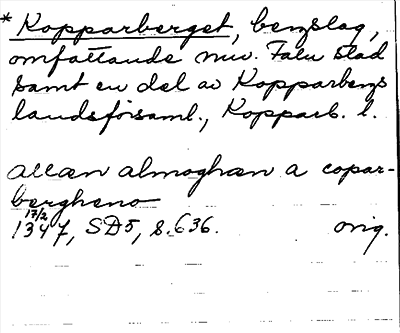 * Kopparberget, bergslag,
omfattande nuv. Falu stad
samt en del av Kopparbergs
landsförsaml., Kopparb. l.
allæn almoghæn a copar-
bergheno
17/2
1347, SD5, s. 636. orig.